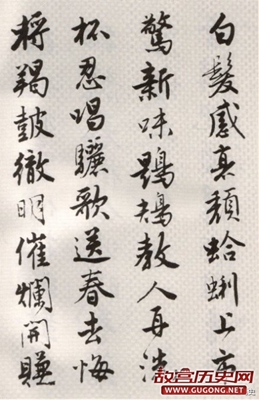 白髮感真頹蛤蜊上市
驚新味鶗鴂教人再洗
杯忍唱驪歌送春去悔
將羯鼓徹明催爛開賺
故宫历史网
WWW.GUGONG.NET
史